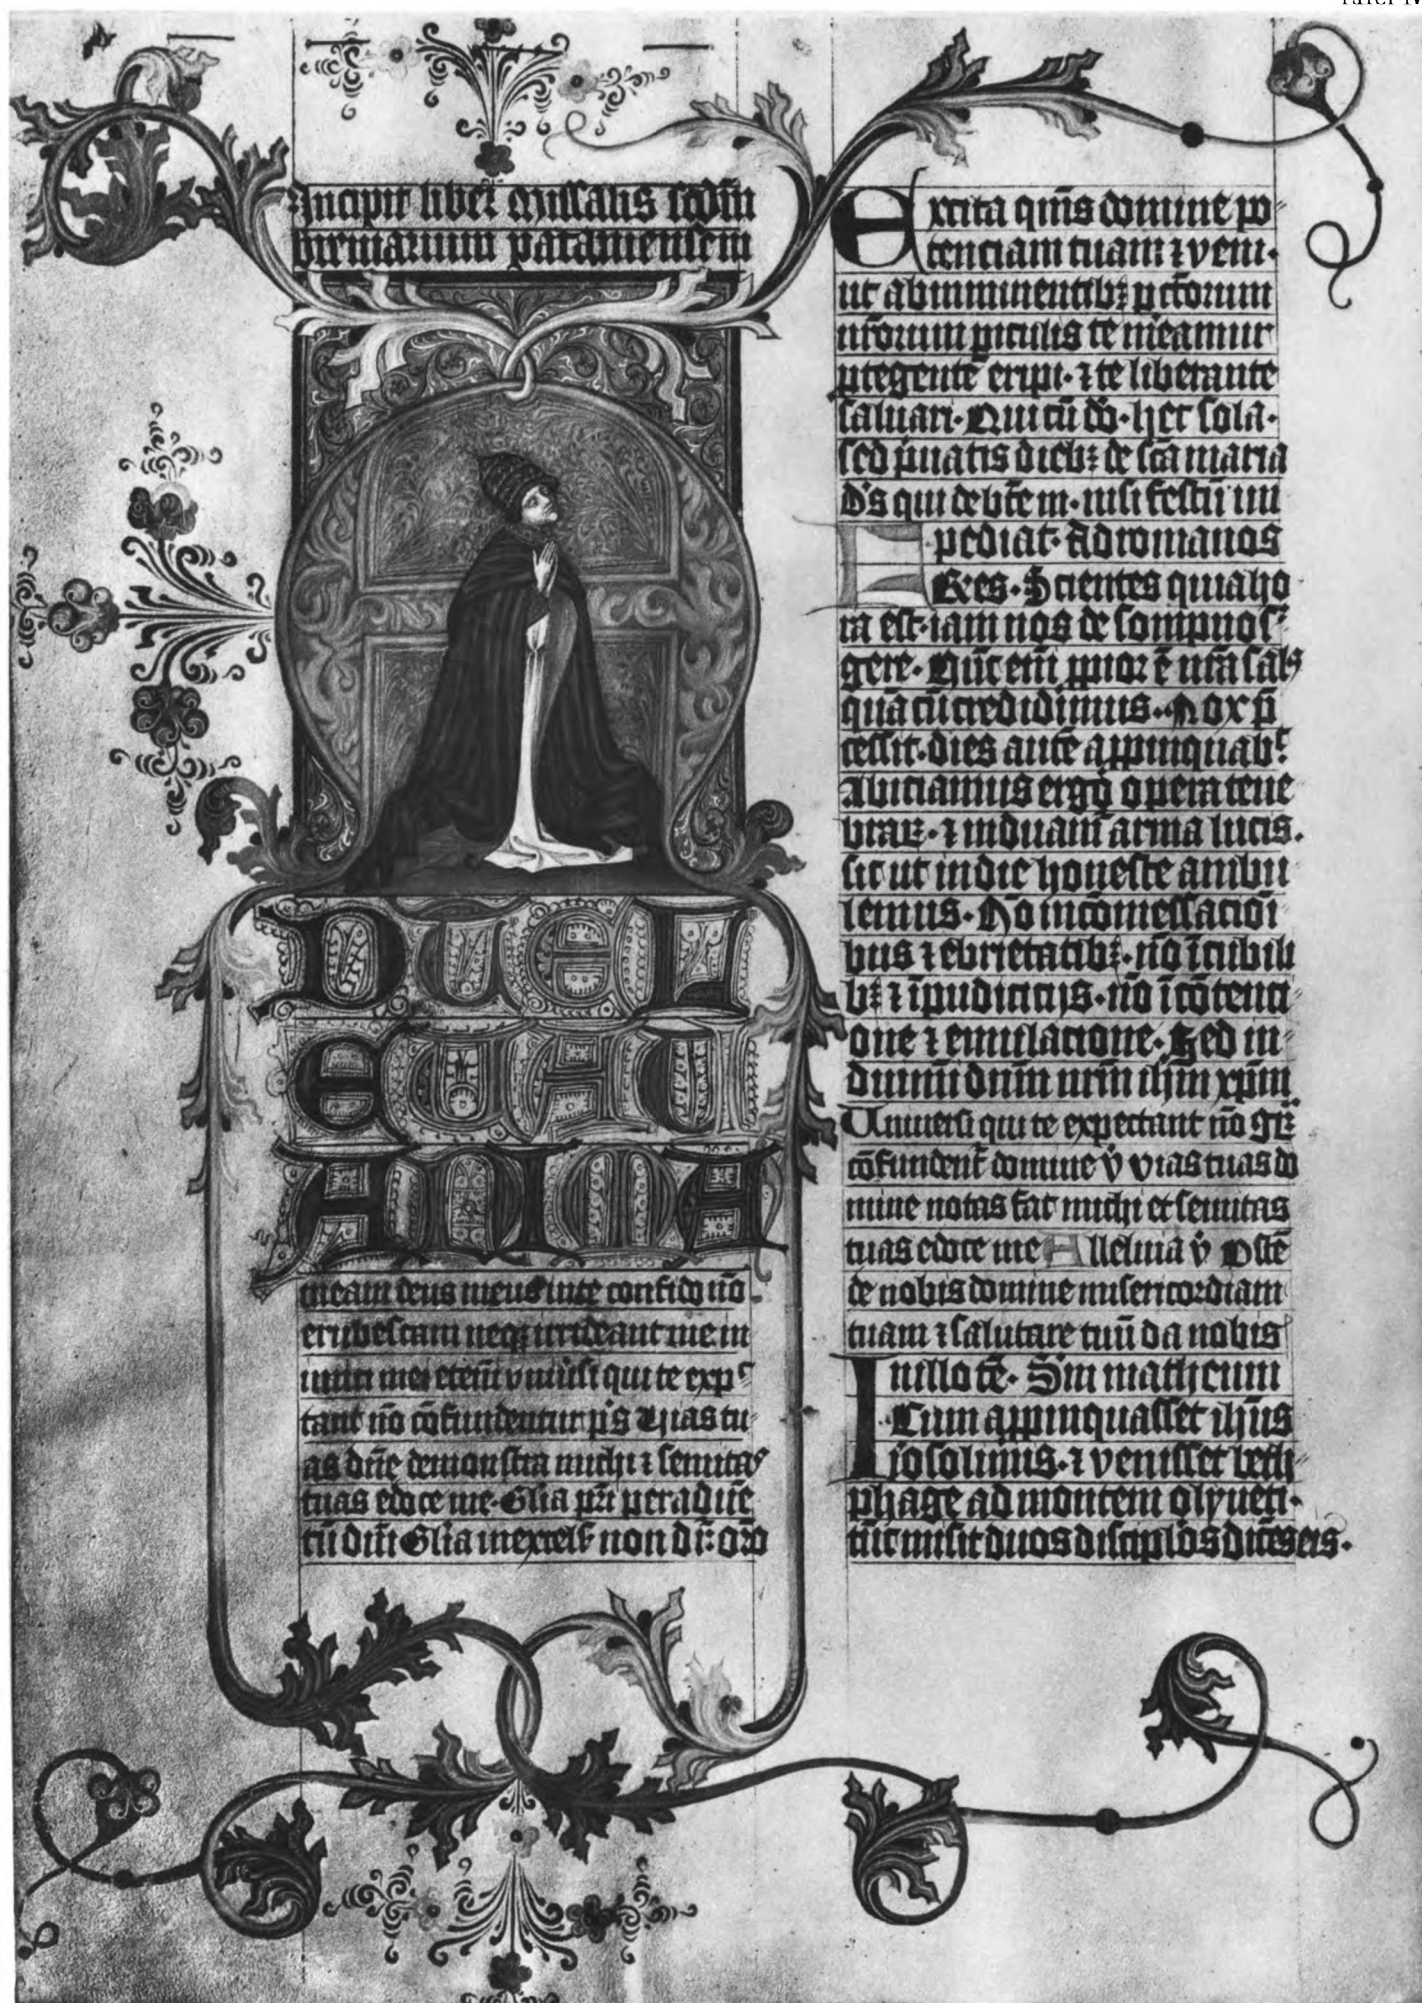 Incipit liber Missalis scdm
breuiarium patauiensem
D TE L
EUAUI
ANIMA
meam deus meus in te confido nō
erubescam neq; irrideant me in
imici mei etem̄ vniūsi qui te exp
tant nō cōfundentur p̄s Uias tu
as dn̄e demonstra michi ⁊ semitas
tuas edoce me · Glīa pr̄i per aduē
tū dn̄i Glīa in excels non dr̄: or̄o
Excita qm̄s domine po
tenciam tuam ⁊ veni ·
ut ab imminentib; pcc̄orum
nr̄orum piculis te m̄eamur
ptegente eripi · ⁊ te liberante
saluari · Qui cū dō · hec sola ·
sed p̄uatis dieb; de scā maria
D's qui de bt̄e m · nisi festū im
pediat · Ad romanos
Fres · Scientes quia ho
ra est · iam nos de sompno s
gere · Nūc em̄ ppior ē nr̄a sal
quā cū credidimus · Nox p̄
cessit · dies autē appinquab
Abiciamus ergo opera tene
brar · ⁊ induam̄ arma lucis ·
sic ut in die honeste ambu
lemus · Nō in cōmessacioi
bus ⁊ ebrietatib; · nō ī cubili
b; ⁊ īpudicicijs · nō ī cōtenci
one ⁊ emulacione · Sed in
duimī dnm̄ nrm̄ ihm̄ xpm̄
Uniuersi qui te expectant nō
cōfundent̄ domine v̄ vias tuas do
mine notas fac michi et semitas
tuas edoce me Alleluia v̄ Ostē
de nobis domine misericordiam
tuam ⁊ salutare tuū da nobis
In illo tē · Scm̄ matheum
Cum appinquasset ihūs
josolimis · ⁊ venisset beth
phage ad montem olyueti ·
tūc misit duos disciplos dicēs eis ·